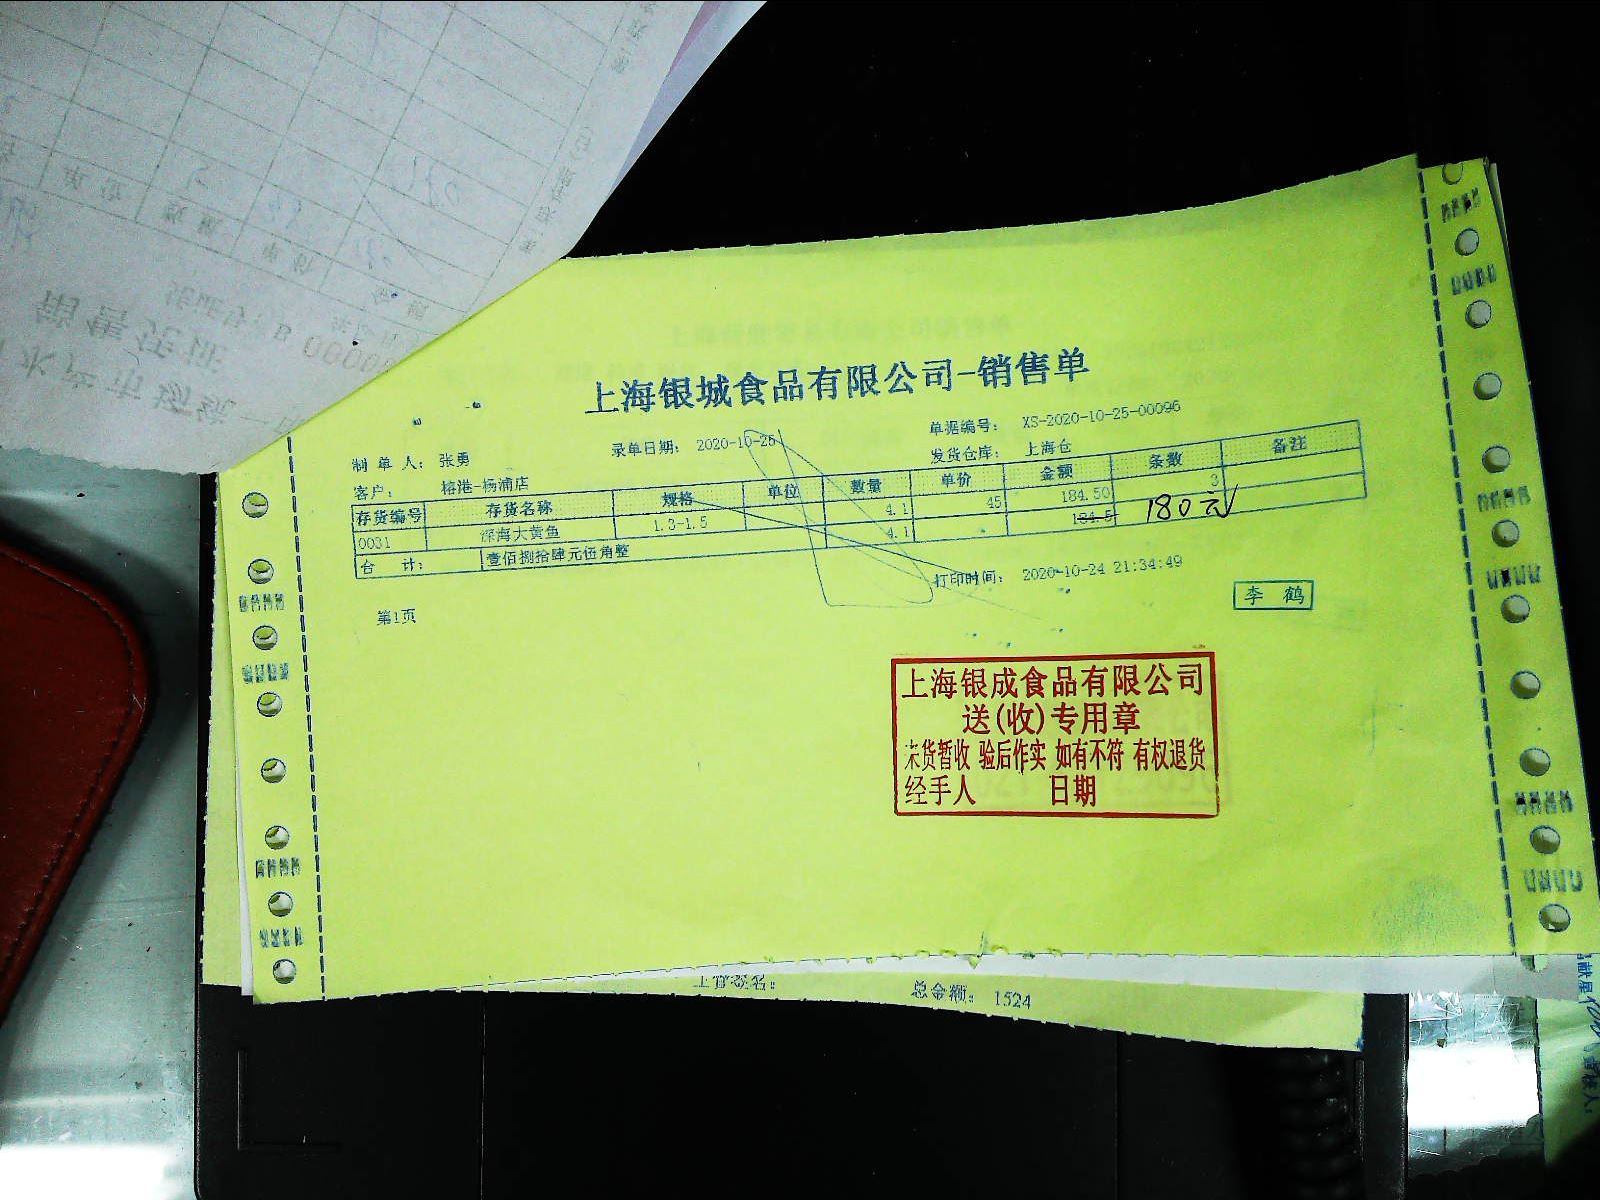 上海银城食品有限公司-销售单
制 单 人： 张勇 录单日期： 2020-10-25 单据编号： XS-2020-10-25-00096
客户： 榕港-杨浦店 发货仓库： 上海仓
存货编号 存货名称 规格 单位 数量 单价 金额 条数 备注
0031 深海大黄鱼 1.3-1.5 4.1 45 184.50 3
合 计： 壹佰捌拾肆元伍角整 4.1 184.5 180元
打印时间： 2020-10-24 21:34:49
第1页
李 鹤
上海银成食品有限公司
送(收)专用章
未货暂收 验后作实 如有不符 有权退货
经手人 日期
总金额： 1524
销售凭证